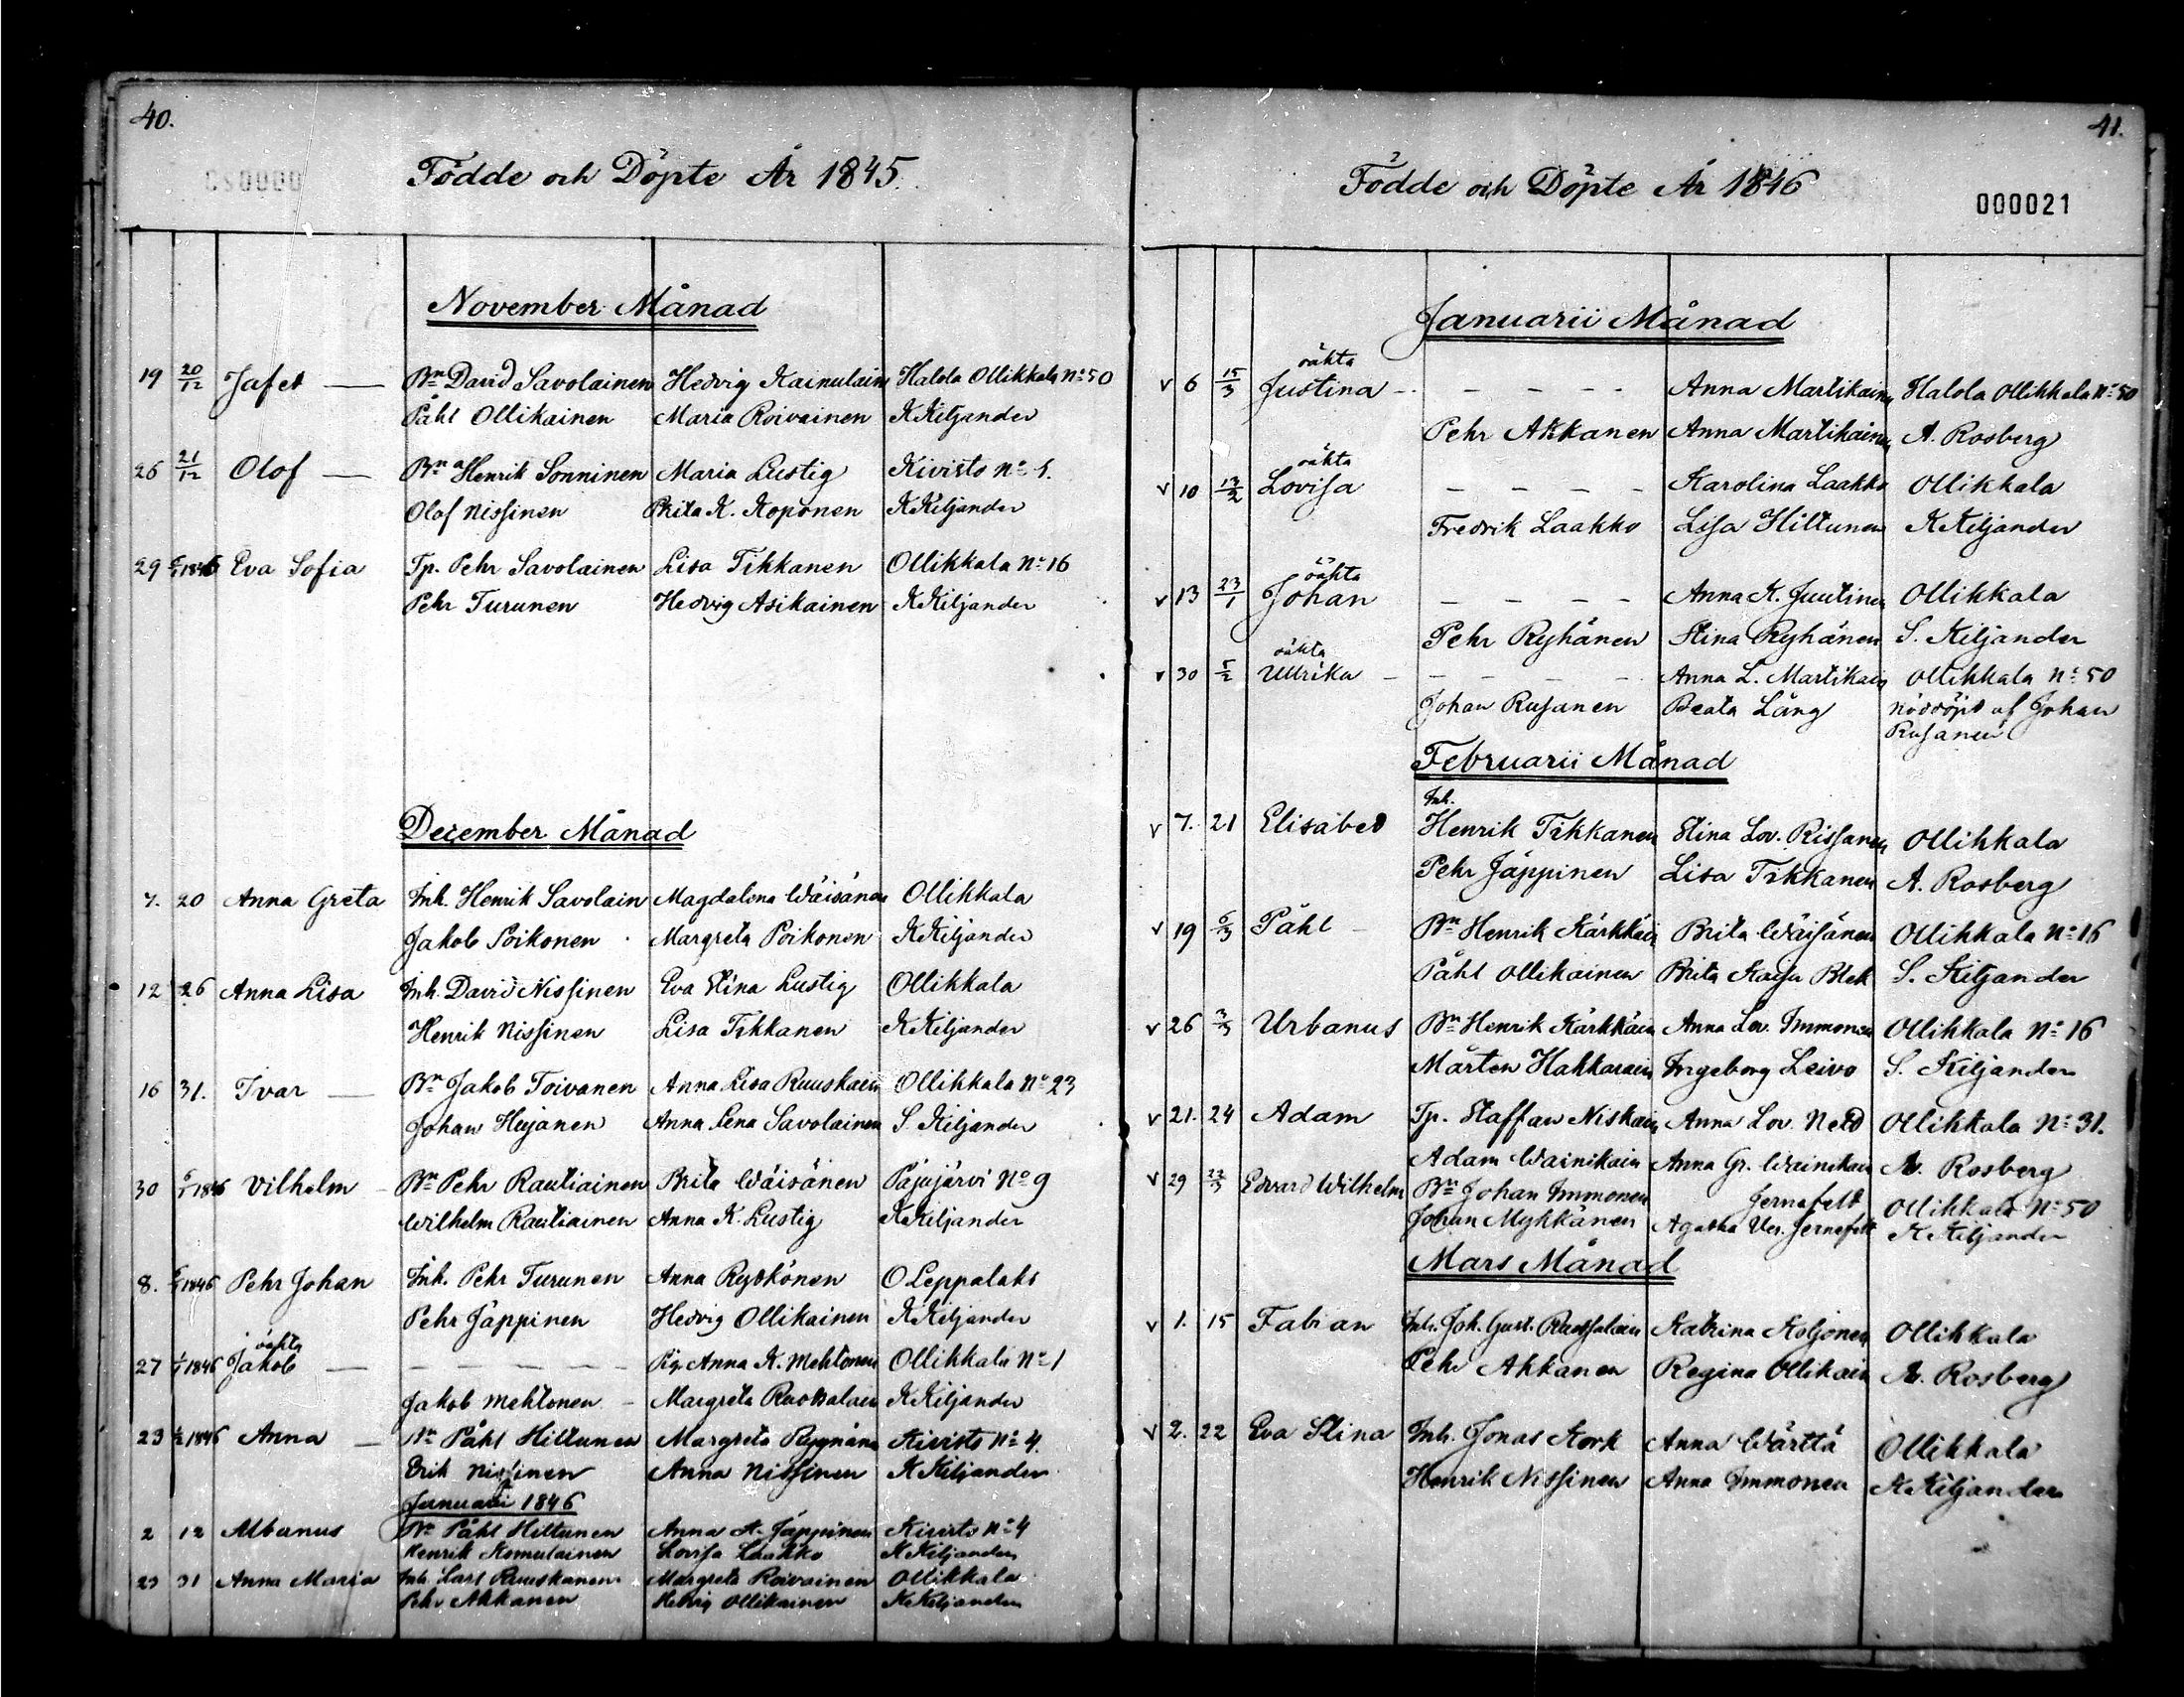 40.
Födde och Döpte År 1845.
November Månad
19 20/12 Jafet — Bn David Savolainen Hedvig Kainulain Halola Ollikkala No 50
Påhl Ollikainen Maria Roivainen K Kiljander
26 21/12 Olof — Bn Henrik Sonninen Maria Lustig Kivisto No 5.
Olof Nissinen Brita K. Koponen K Kiljander
29 1846 Eva Sofia Tp. Pehr Savolainen Lisa Tikkanen Ollikkala No 16
Pehr Turunen Hedvig Asikainen K Kiljander
December Månad
7. 20 Anna Greta Inh. Henrik Savolain Magdalena Wäisänen Ollikkala
Jakob Poikonen Margreta Poikonen K Kiljander
12 26 Anna Lisa Inh. David Nissinen Eva Stina Lustig Ollikkala
Henrik Nissinen Lisa Tikkanen K Kiljander
16 31. Ivar — Bn Jakob Toivanen Anna Lisa Ruuskain Ollikkala No 23
Johan Hujanen Anna Lena Savolainen S. Kiljander
30 1846 Vilhelm — Bn Pehr Rautiainen Brita Wäisänen Pajujärvi No 9
Wilhelm Rautiainen Anna K. Lustig K Kiljander
8. 1846 Pehr Johan Inh. Pehr Turunen Anna Ryökönen O Leppalaks
Pehr Jäppinen Hedvig Ollikainen K Kiljander
oäkta
27 1846 Jakob — — — — — Pig. Anna K. Mehtonen Ollikkala No 1
Jakob Mehtonen — Margreta K Kiljander
23 1846 Anna — Bn Påhl Hiltunen Margreta Kivisto No 4.
Erik Nissinen Anna Nissinen K Kiljander
Januari 1846
2 12 Albanus Bn Påhl Hiltunen Anna K. Jäppinen Kivisto No 4
Henrik Komulainen Lovisa Laakko K Kiljander
23 31 Anna Maria Inh. Lars Ruuskanen Margreta Roivainen Ollikkala
Pehr Akkanen Hedvig Ollikainen K Kiljander
41.
Födde och Döpte År 1846
000021
Januarii Månad
oäkta
v 6 15/3 Justina — — — — Anna Martikainen Halola Ollikkala No 50
Pehr Akkanen Anna Martikainen A. Rosberg
oäkta
v 10 13/2 Lovisa — — — — Karolina Laakko Ollikkala
Fredrik Laakko Lisa Hiltunen K Kiljander
oäkta
v 13 23/1 Johan — — — — Anna K. Juutinen Ollikkala
Pehr Ryhänen Stina Ryhänen S. Kiljander
oäkta
v 30 5/2 Ullrika — — — — Anna L. Martikain Ollikkala No 50
Johan Rusanen Beata Lång nöddöpt af Johan
Rusanen
Februarii Månad
Inh.
v 7. 21 Elisabed Henrik Tikkanen Stina Lov. Rissanen Ollikkala
Pehr Jäppinen Lisa Tikkanen A. Rosberg
v 19 Påhl — Bn Henrik Kärkkäin Brita Wäisänen Ollikkala No 16
Påhl Ollikainen Brita Kaisa Blek S. Kiljander
v 26 3/3 Urbanus Bn Henrik Kärkkäin Anna Lov. Immonen Ollikkala No 16
Mårten Hakkarain Ingeborg Leivo S. Kiljander
v 21. 24 Adam Tp. Staffan Niskain Anna Lov. Ollikkala No 31.
Adam Wainikain Anna Gr. Wainikain A. Rosberg
v 29 22/3 Edvard Wilhelm Bn Johan Immonen Jernefelt Ollikkala No 50
Johan Mykkänen Agatha Jernefelt K Kiljander
Mars Månad
v 1. 15 Fabian Inh. Joh. Gust. Katrina Koljonen Ollikkala
Pehr Akkanen Regina Ollikain A. Rosberg
v 2. 22 Eva Stina Inh. Jonas Kork Anna Wärttä Ollikkala
Henrik Nissinen Anna Immonen K Kiljander